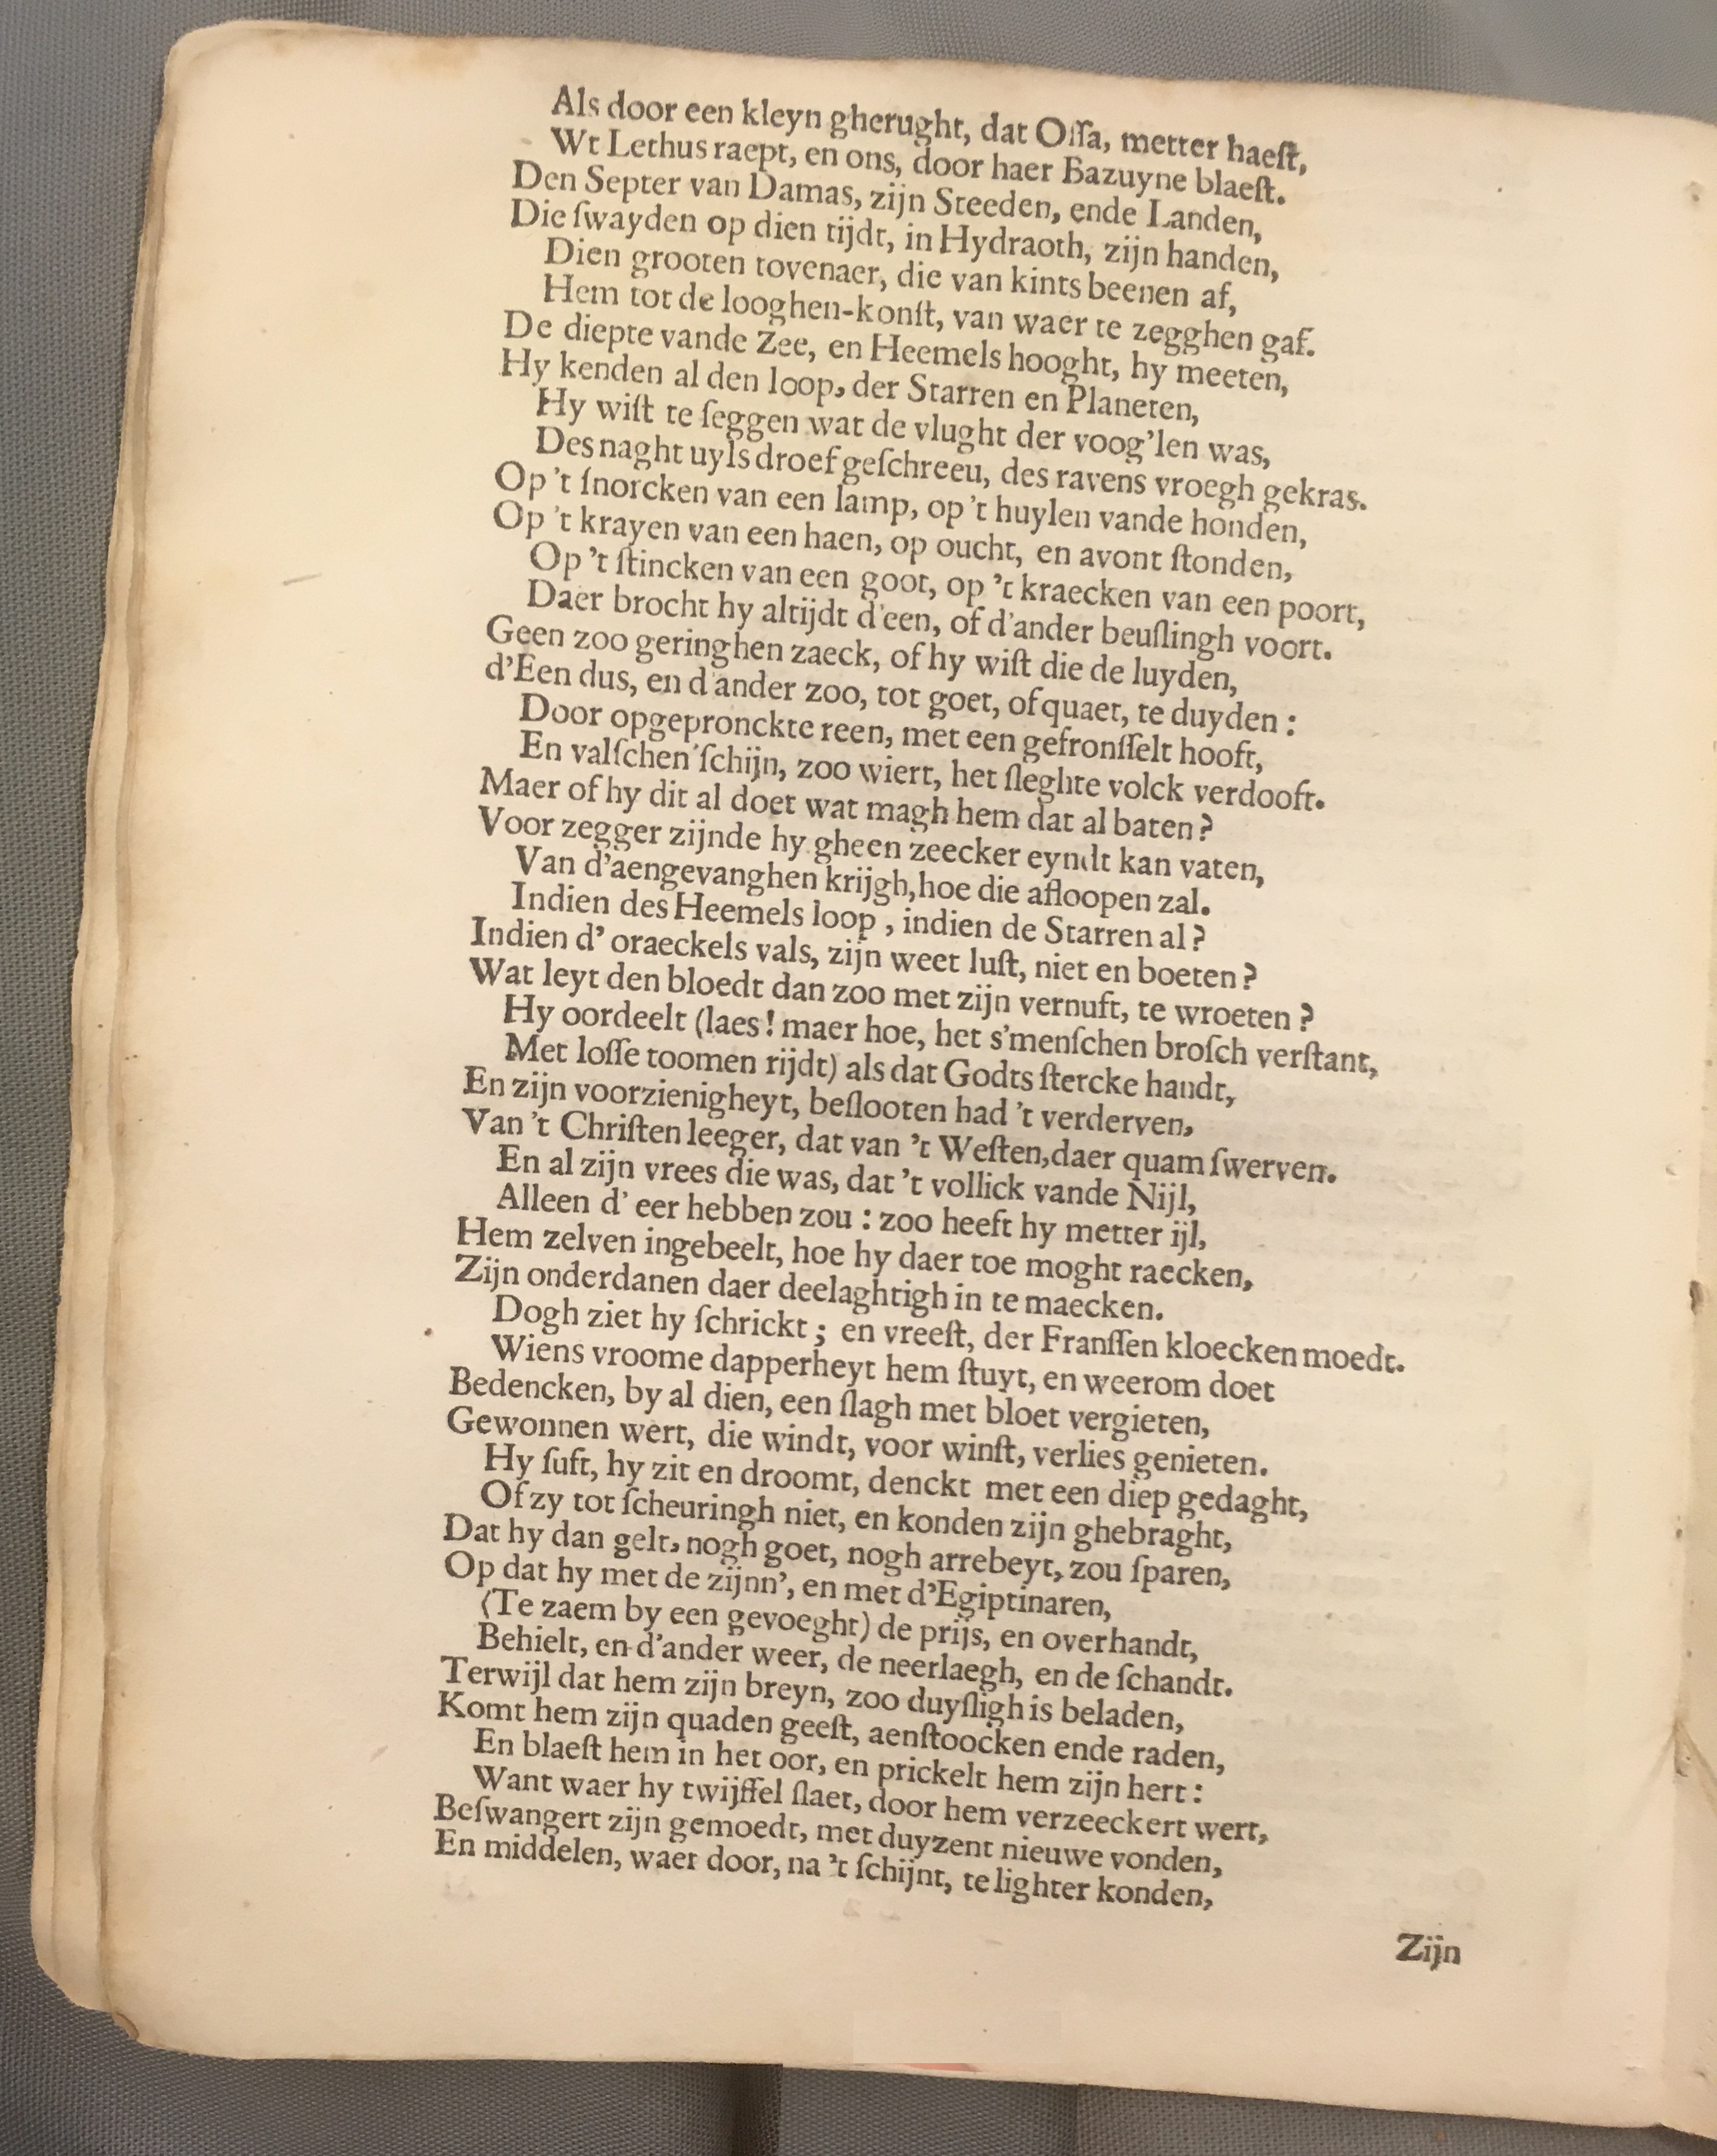 Als door een kleyn gherught, dat Oſſa, metter haeſt,
Wt Lethus raept, en ons, door haer Bazuyne blaeſt.
Den Septer van Damas, zijn Steeden, ende Landen,
Die ſwayden op dien tijdt, in Hydraoth, zijn handen,
Dien grooten tovenaer, die van kints beenen af,
Hem tot de looghen-konſt, van waer te zegghen gaf.
De diepte vande Zee, en Heemels hooght, hy meeten,
Hy kenden al den loop, der Starren en Planeten,
Hy wiſt te ſeggen wat de vlught der voog'len was,
Des naght uyls droef geſchreeu, des ravens vroegh gekras.
Op 't ſnorcken van een lamp, op 't huylen vande honden,
Op 't krayen van een haen, op oucht, en avont ſtonden,
Op 't ſtincken van een goot, op 't kraecken van een poort,
Daer brocht hy altijdt d'een, of d'ander beuſlingh voort.
Geen zoo geringhen zaeck, of hy wiſt die de luyden,
d'Een dus, en d'ander zoo, tot goet, of quaet, te duyden :
Door opgepronckte reen, met een gefronſſelt hooft,
En valſchen ſchijn, zoo wiert, het ſleghte volck verdooft.
Maer of hy dit al doet wat magh hem dat al baten?
Voor zegger zijnde hy gheen zeecker eyndt kan vaten,
Van d'aengevanghen krijgh, hoe die afloopen zal.
Indien des Heemels loop, indien de Starren al?
Indien d' oraeckels vals, zijn weet luſt, niet en boeten?
Wat leyt den bloedt dan zoo met zijn vernuft, te wroeten?
Hy oordeelt (laes! maer hoe, het s'menſchen broſch verſtant,
Met loſſe toomen rijdt) als dat Godts ſtercke handt,
En zijn voorzienigheyt, beſlooten had 't verderven,
Van 't Chriſten leeger, dat van 't Weſten, daer quam ſwerven.
En al zijn vrees die was, dat 't vollick vande Nijl,
Alleen d' eer hebben zou : zoo heeft hy metter ijl,
Hem zelven ingebeelt, hoe hy daer toe moght raecken,
Zijn onderdanen daer deelaghtigh in te maecken.
Dogh ziet hy ſchrickt ; en vreeſt, der Franſſen kloecken moedt.
Wiens vroome dapperheyt hem ſtuyt, en weerom doet
Bedencken, by al dien, een ſlagh met bloet vergieten,
Gewonnen wert, die windt, voor winſt, verlies genieten.
Hy ſuft, hy zit en droomt, denckt met een diep gedaght,
Of zy tot ſcheuringh niet, en konden zijn ghebraght,
Dat hy dan gelt, nogh goet, nogh arrebeyt, zou ſparen,
Op dat hy met de zijnn', en met d'Egiptinaren,
(Te zaem by een gevoeght) de prijs, en overhandt,
Behielt, en d'ander weer, de neerlaegh, en de ſchandt.
Terwijl dat hem zijn breyn, zoo duyſligh is beladen,
Komt hem zijn quaden geeſt, aenſtoocken ende raden,
En blaeſt hem in het oor, en prickelt hem zijn hert :
Want waer hy twijffel ſlaet, door hem verzeeckert wert,
Beſwangert zijn gemoedt, met duyzent nieuwe vonden,
En middelen, waer door, na 't ſchijnt, te lighter konden,
Zijn